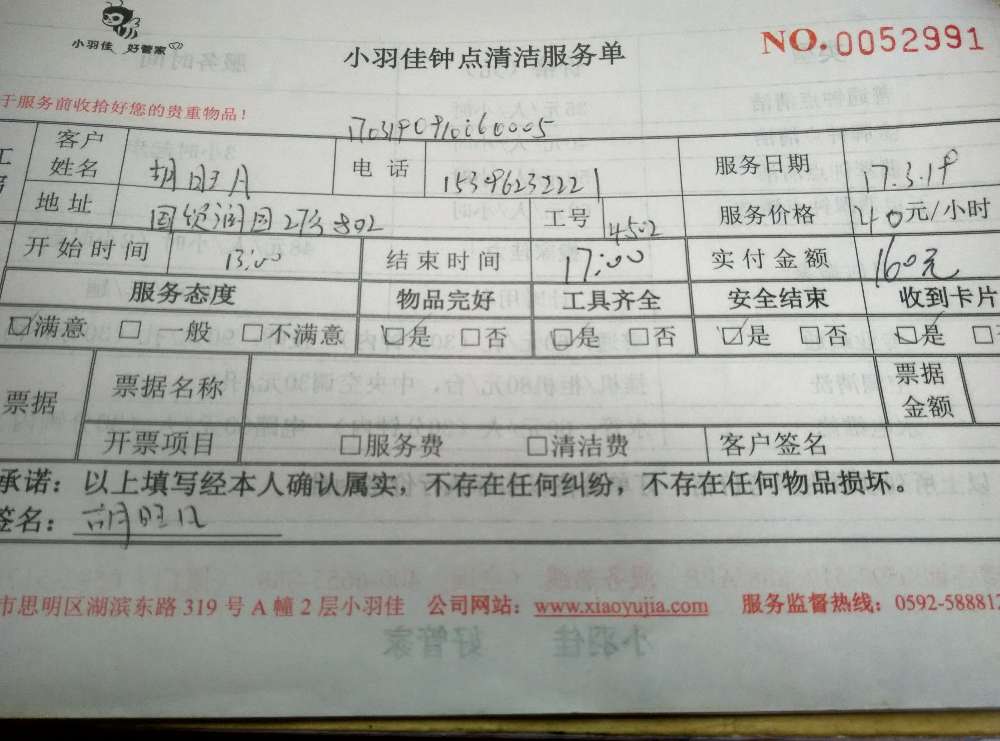 小羽佳 好管家
小羽佳钟点清洁服务单
NO.0052991
于服务前收拾好您的贵重物品！
客户姓名 胡旺 电话 服务日期 17.3.19
地址 国贸润园27# 802 工号 4502 服务价格 40元/小时
开始时间 13:00 结束时间 17:00 实付金额 160元
服务态度 物品完好 工具齐全 安全结束 收到卡片
☑满意 □一般 □不满意 ☑是 □否 ☑是 □否 ☑是 □否 ☑是 □
票据 票据名称 票据金额
开票项目 □服务费 □清洁费 客户签名
承诺：以上填写经本人确认属实，不存在任何纠纷，不存在任何物品损坏。
签名：胡旺
市思明区湖滨东路 319 号 A 幢 2 层小羽佳 公司网站：www.xiaoyujia.com 服务监督热线：0592-588812